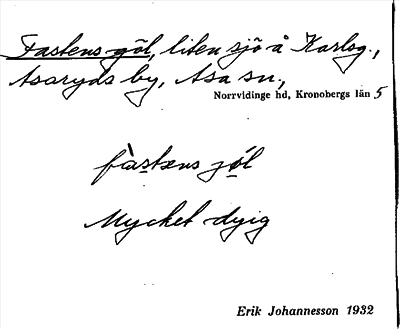 Fastens göl, liten sjö å Karlsg.,
Asaryds by, Asa sn.,
Norrvidinge hd, Kronobergs län 5
fàstæns jøl
Mycket dyig
Erik Johannesson 1932